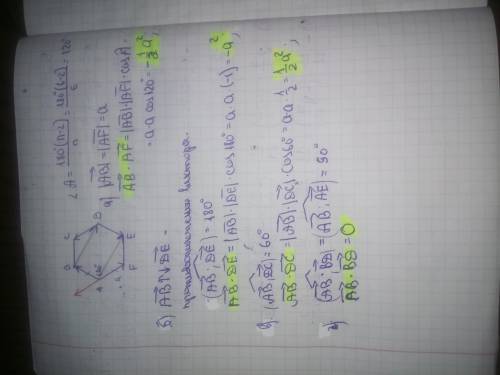 ∠A = 180°(n-2)/n = 180°(6-2)/6 = 120°
а) |AB| = |AF| = a
AB · AF = |AB|·|AF|·cos A =
= a·a cos120° = -1/2 a²;
б) AB ↑↓ DE -
противоположного вектора.
(AB; DE) = 180°
AB · DE = |AB|·|DE|·cos 180° = a·a·(-1) = -a²;
в) (AB; DC) = 60°
AB · DC = |AB|·|DC|·cos 60° = a·a·1/2 = 1/2 a²;
г) (AB; BD) = (AB; AE) = 90°
AB · BD = 0
A
B
C
D
E
F